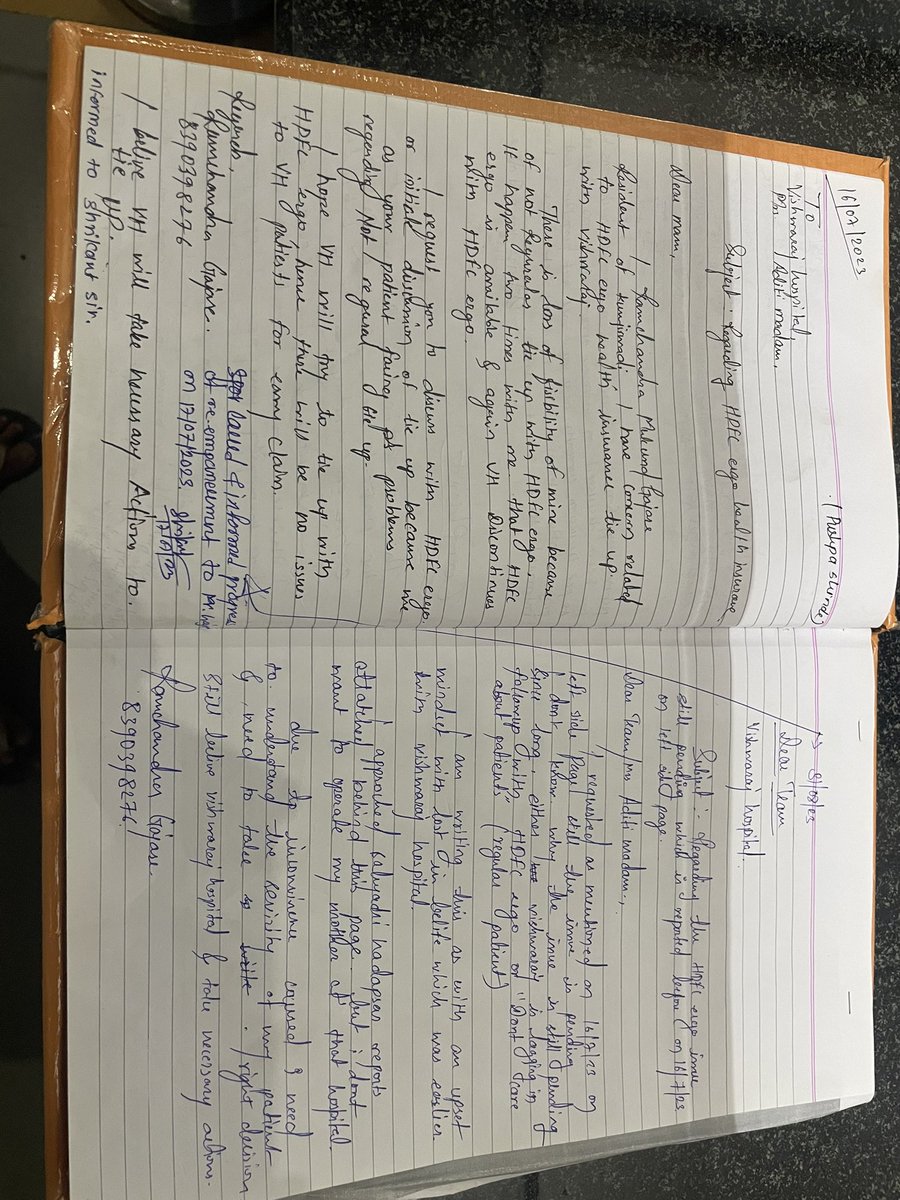 16/07/2023
(Pushpa shinde)
To
Vishwaraj hospital
Aditi madam,
Subject: Regarding HDFC ergo health insurance.
Dear mam,
I Ramchandra Mukund Gajase
Resident of kunjirwadi. I have concern related
to HDFC ergo health insurance tie up
with vishwaraj.
There is loss of fisibility of mine because
of not Regural tie up with HDFC ergo.
It happen two times with me that HDFC
ergo is available & again VH Discontinues
with HDFC ergo.
I request you to discuss with HDFC ergo.
or initiate discussion of tie up because we
as your patient facing problems
regarding Not regural tie up.
I hope VH will try to tie up with
HDFC ergo, hence there will be no issues
to VH patients for easy claim.
Regards,
Ramchandra Gajase.
8390398276
called & informed progress
of re-empanelment to
on 17/07/2023
17/07/23
I belive VH will take necessary Action to.
tie up.
informed to shrikant sir.
8/08/23
Dear Team
Vishwaraj hospital.
Subject:- Regarding the HDFC ergo issue
still pending which is reported before on 16/7/23
on left side page.
Dear Team/Mr Aditi madam,
I requested as mentioned on 16/7/23 on
left side page still the issue is pending
I don't know why the issue is still pending
since long, either vishwaraj is lagging in
followup with HDFC ergo or "Dont care
about patients" (regular patient)
I am writing this as with an upset
mindset with lost in belife which was earlier
with vishwaraj hospital.
I approched sahyadri hadapsar reports
attatched behind this page. but i dont
want to operate my mother at that hospital
due to inconvinence caused & need
to understand the sevirity of my patient
& need to take right decision
still belive vishwaraj hospital & take necessary actions.
Ramchandra Gajase.
8390398276.